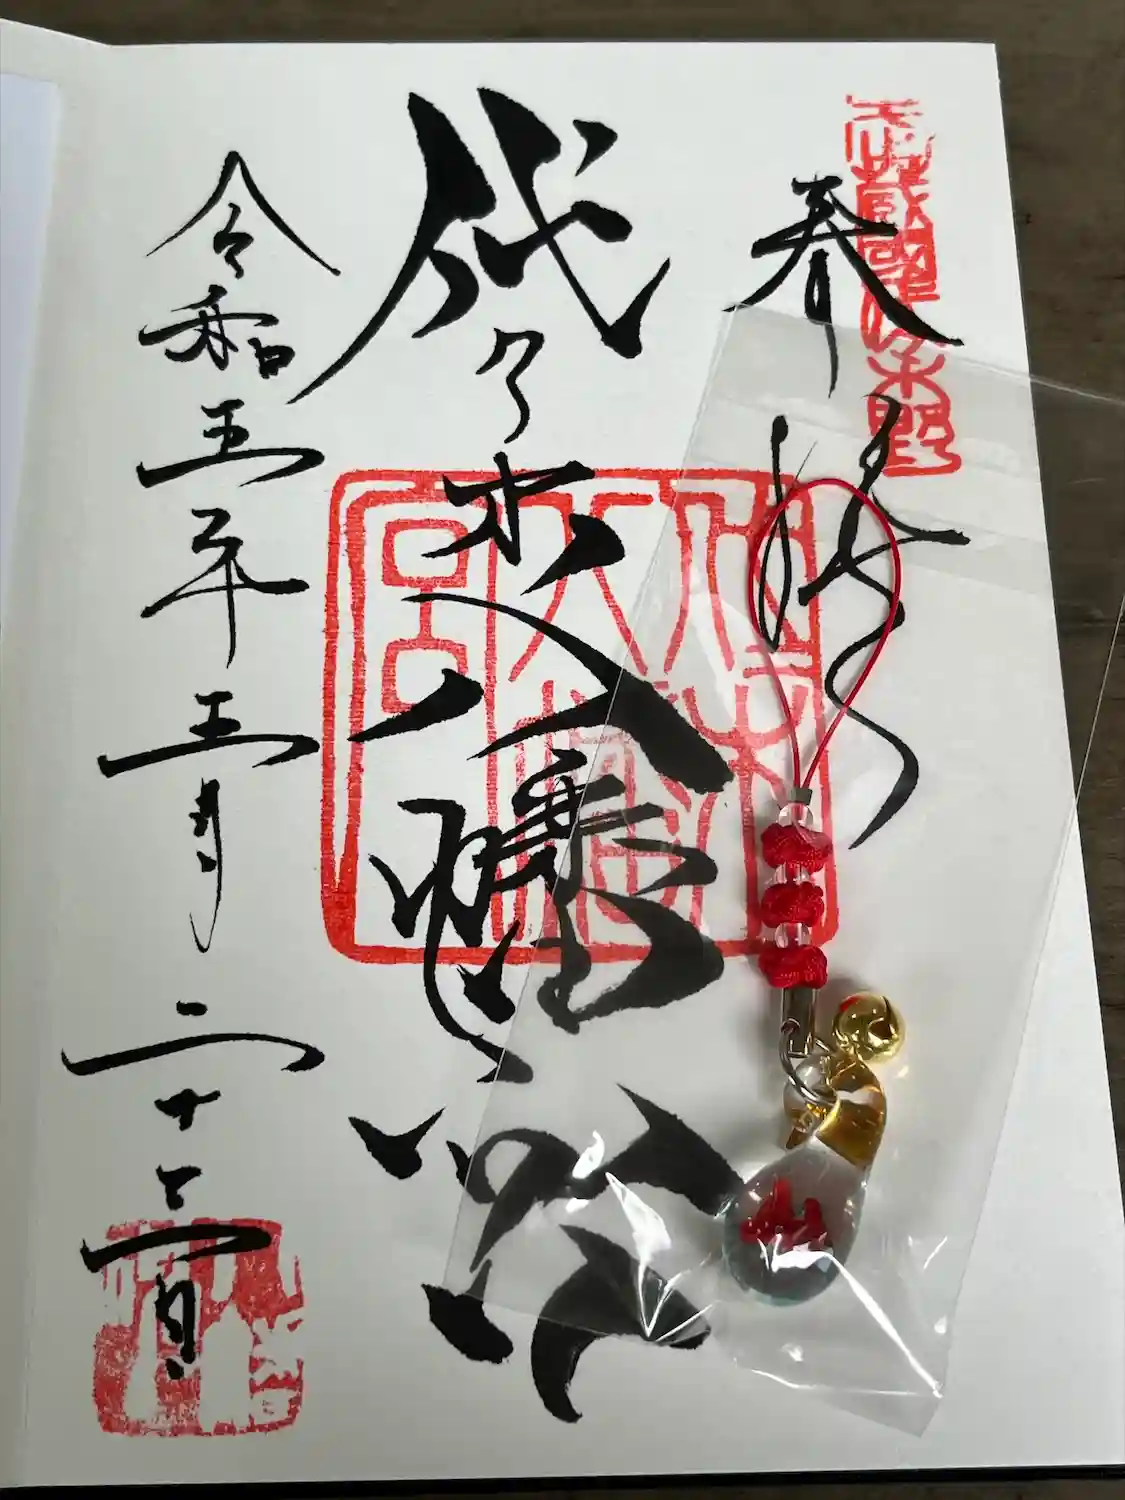 武蔵國代々木野
奉拝
代々木八幡宮
代々木八幡宮
令和五年五月二十三日